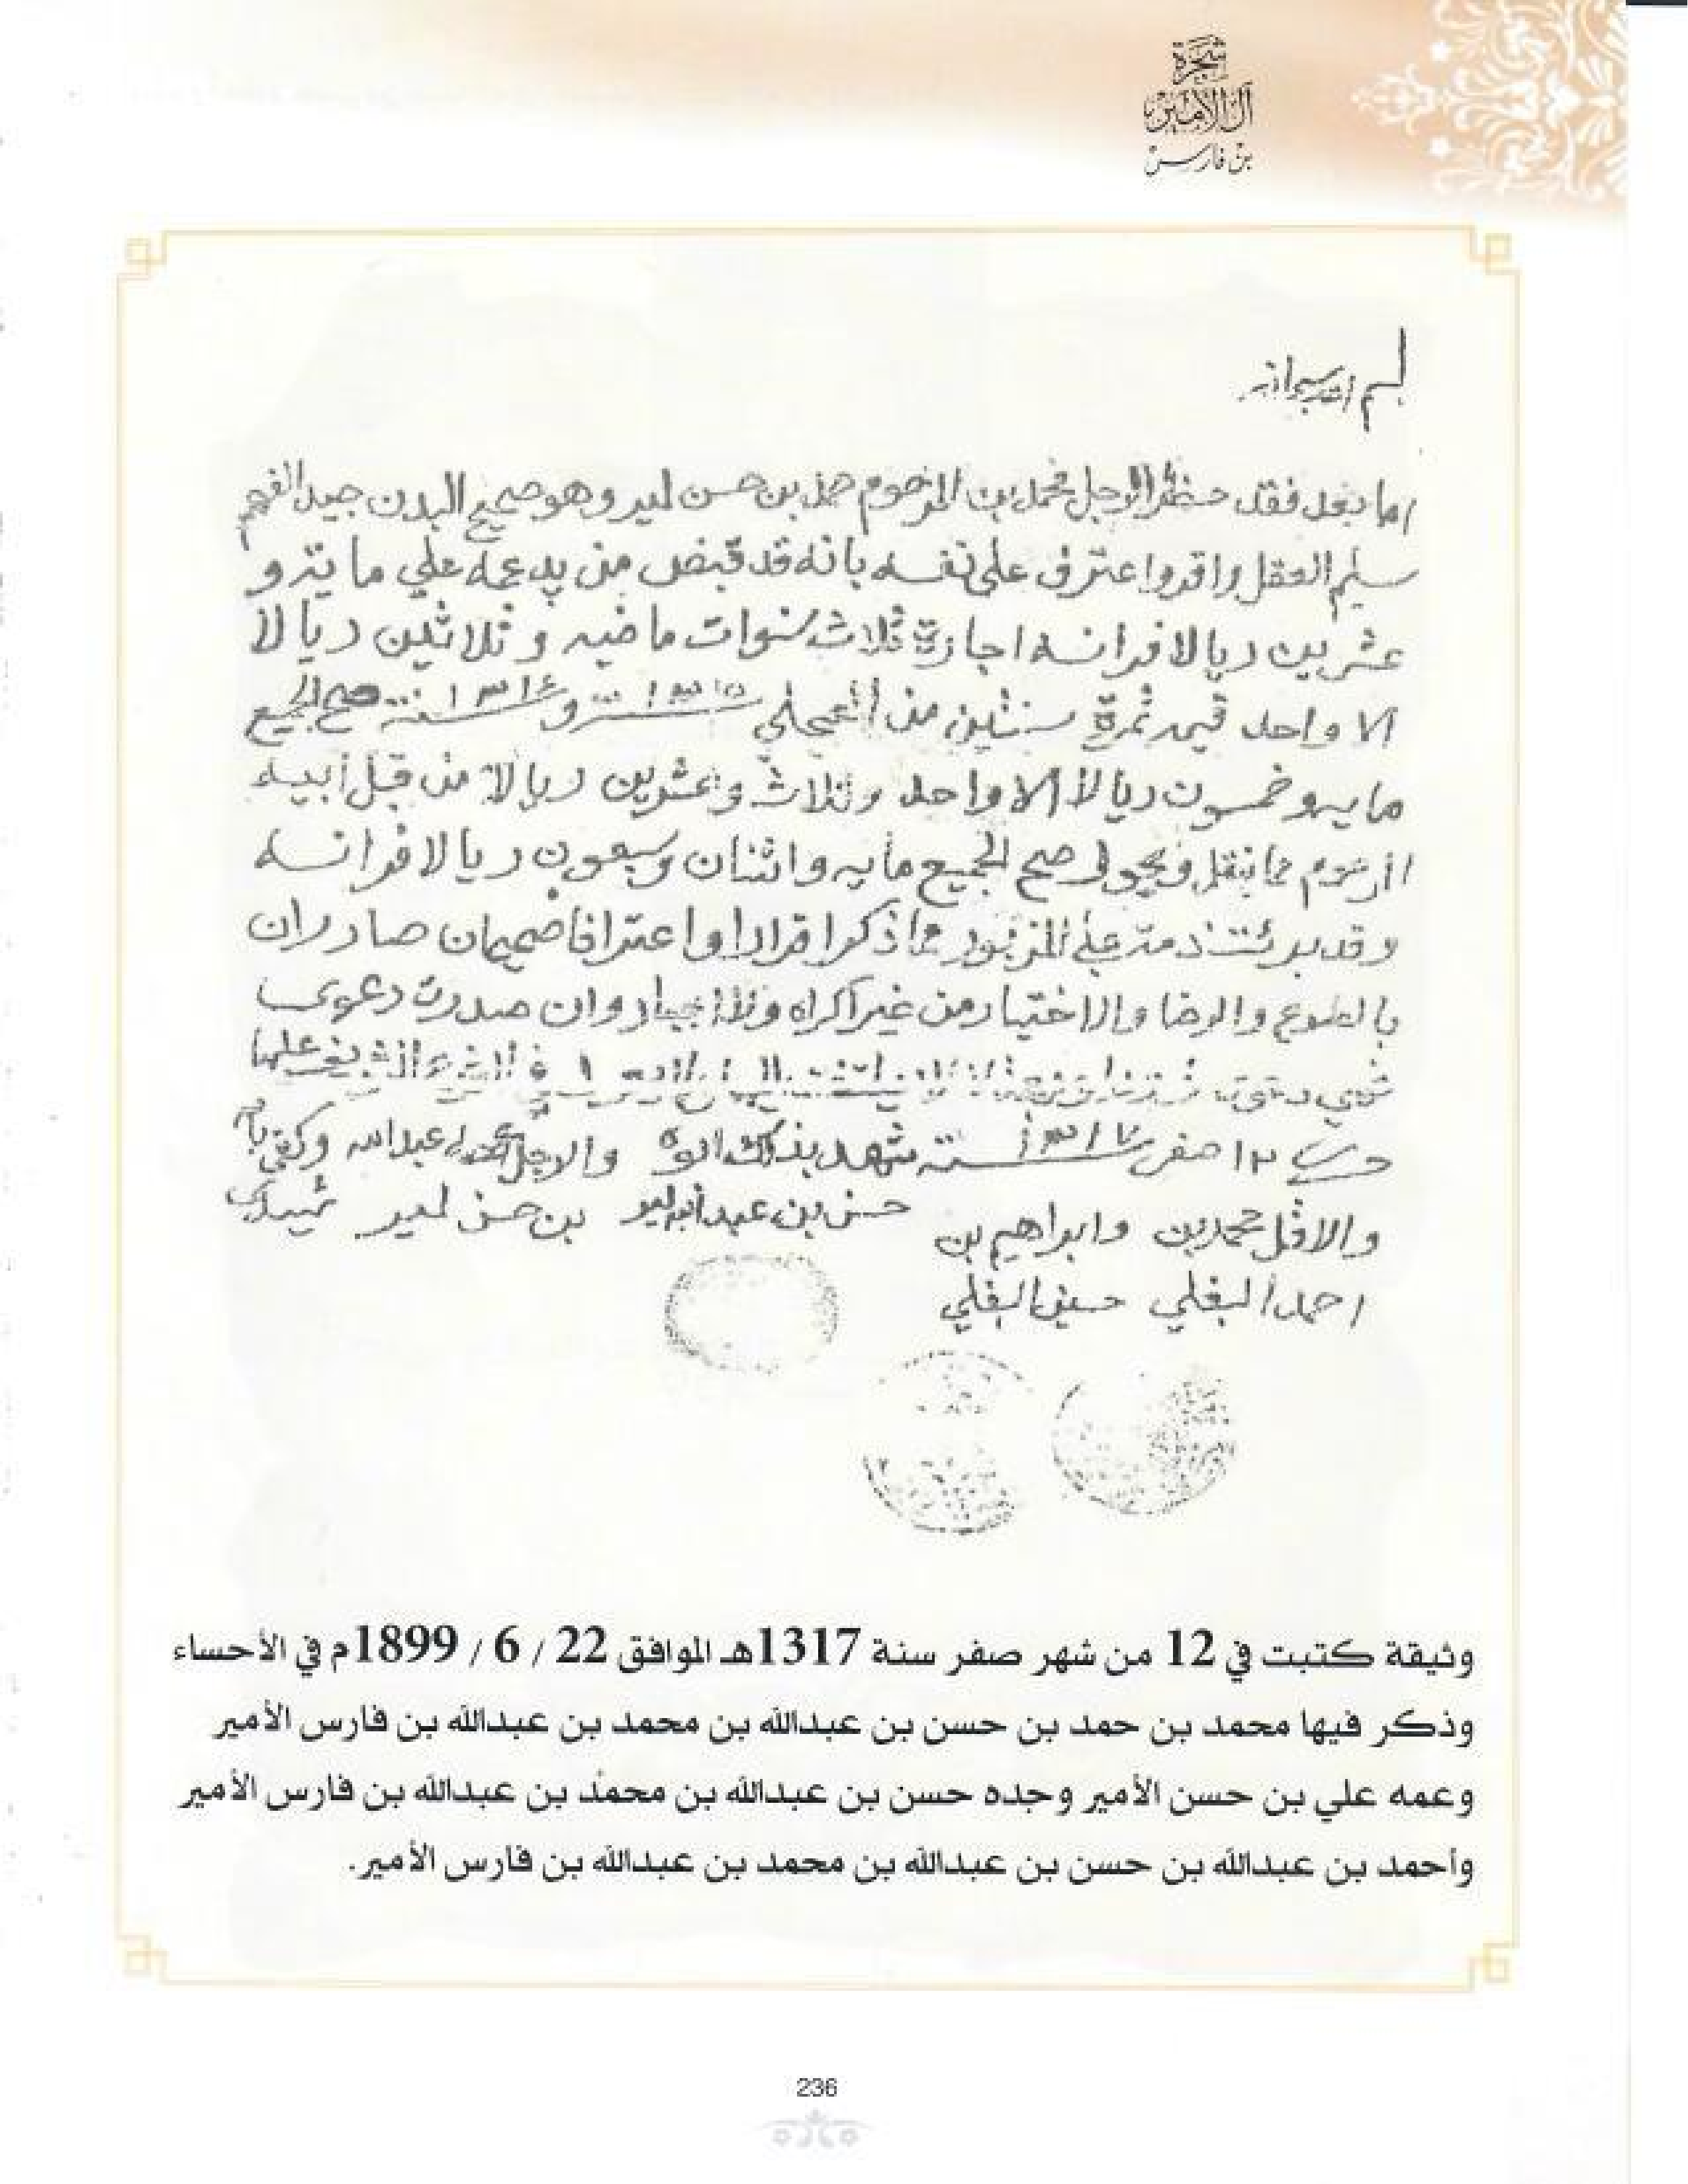 شجرة
آل الأمير
بن فارس
بسم الله سبحانه
اما بعد فقد حضر الرجل محمد بن المرحوم حمد بن حسن لمير وهو صحيح البدن جيد الفهم
سليم العقل واقر واعترف على نفسه بانه قد قبض من يد عمه علي مايه و
عشرين ريالا فرانسه اجارة ثلاث سنوات ماضيه و ثلاثين ريالا
الا واحد قيمة ثمرة سنتين من سنة ١٣١٥ و سنة ١٣١٤ صح الجميع
مايه وخمسون ريالا الا واحد وثلاث وعشرين ريالا من قبل أبيه
المرحوم مما ينقل ويحول صح الجميع مايه واثنان وسبعون ريالا فرانسه
وقد برئت ذمة علي المزبور مما ذكر اقرارا واعترافا صحيحان صادران
بالطوع والرضا والاختيار من غير اكراه ولا اجبار وان صدرت دعوى
في الشرع الشريف
١٢ صفر سنة ١٣١٧ شهد بذلك والاجل عبدالله وكفى بالله
والاقل محمد بن وابراهيم بن حسن بن عبدالله لمير بن حسن لمير شهيدا
احمد البغلي حسين البغلي
وثيقة كتبت في 12 من شهر صفر سنة 1317هـ الموافق 22 / 6 / 1899م في الأحساء
وذكر فيها محمد بن حمد بن حسن بن عبدالله بن محمد بن عبدالله بن فارس الأمير
وعمه علي بن حسن الأمير وجده حسن بن عبدالله بن محمد بن عبدالله بن فارس الأمير
وأحمد بن عبدالله بن حسن بن عبدالله بن محمد بن عبدالله بن فارس الأمير.
236